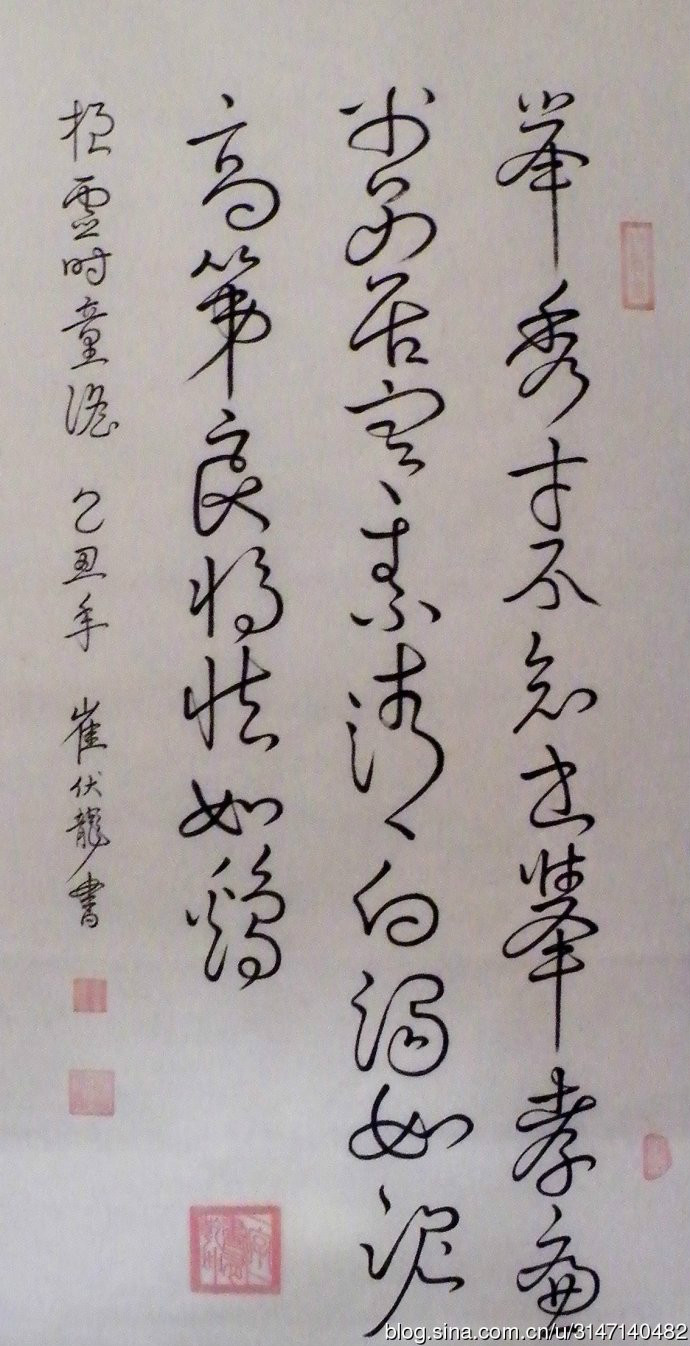 举秀才不知书举孝廉
父别居寒素清白浊如泥
高第良将怯如鸡
桓霊时童谣 己丑年 崔伏龍書
blog.sina.com.cn/u/3147140482